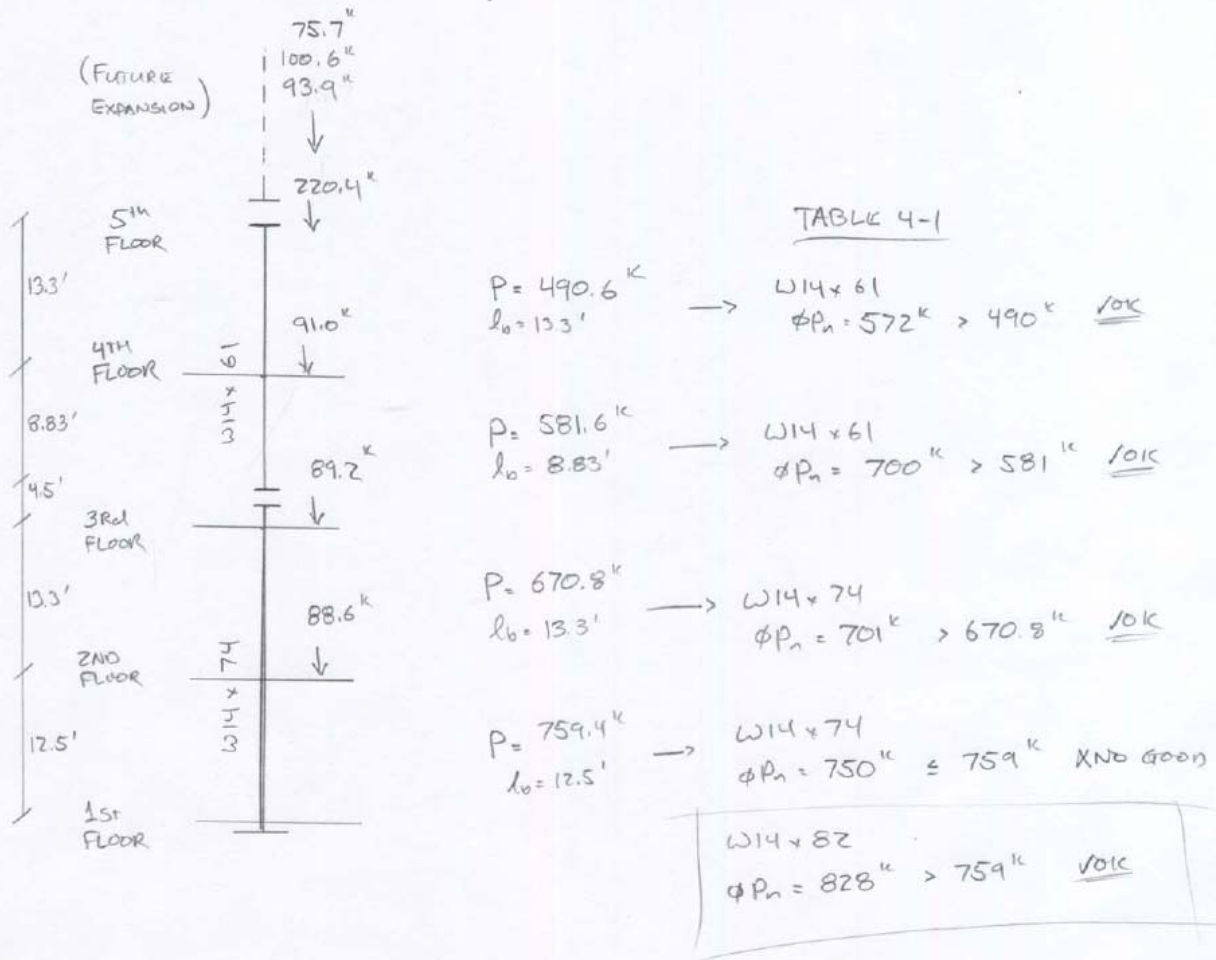 75.7ᵏ
100.6ᵏ
93.9ᵏ
(FUTURE
EXPANSION)
220.4ᵏ
5ᵗʰ
FLOOR
13.3'
91.0ᵏ
4TH
FLOOR
W14 x 61
8.83'
89.2ᵏ
4.5'
3Rd
FLOOR
13.3'
88.6ᵏ
2ND
FLOOR
W14 x 74
12.5'
1st
FLOOR
TABLE 4-1
P = 490.6ᵏ
lb = 13.3'
→ W14 x 61
φPn = 572ᵏ > 490ᵏ √OK
P = 581.6ᵏ
lb = 8.83'
→ W14 x 61
φPn = 700ᵏ > 581ᵏ √OK
P = 670.8ᵏ
lb = 13.3'
→ W14 x 74
φPn = 701ᵏ > 670.8ᵏ √OK
P = 759.4ᵏ
lb = 12.5'
→ W14 x 74
φPn = 750ᵏ ≤ 759ᵏ XNO GOOD
W14 x 82
φPn = 828ᵏ > 759ᵏ √OK